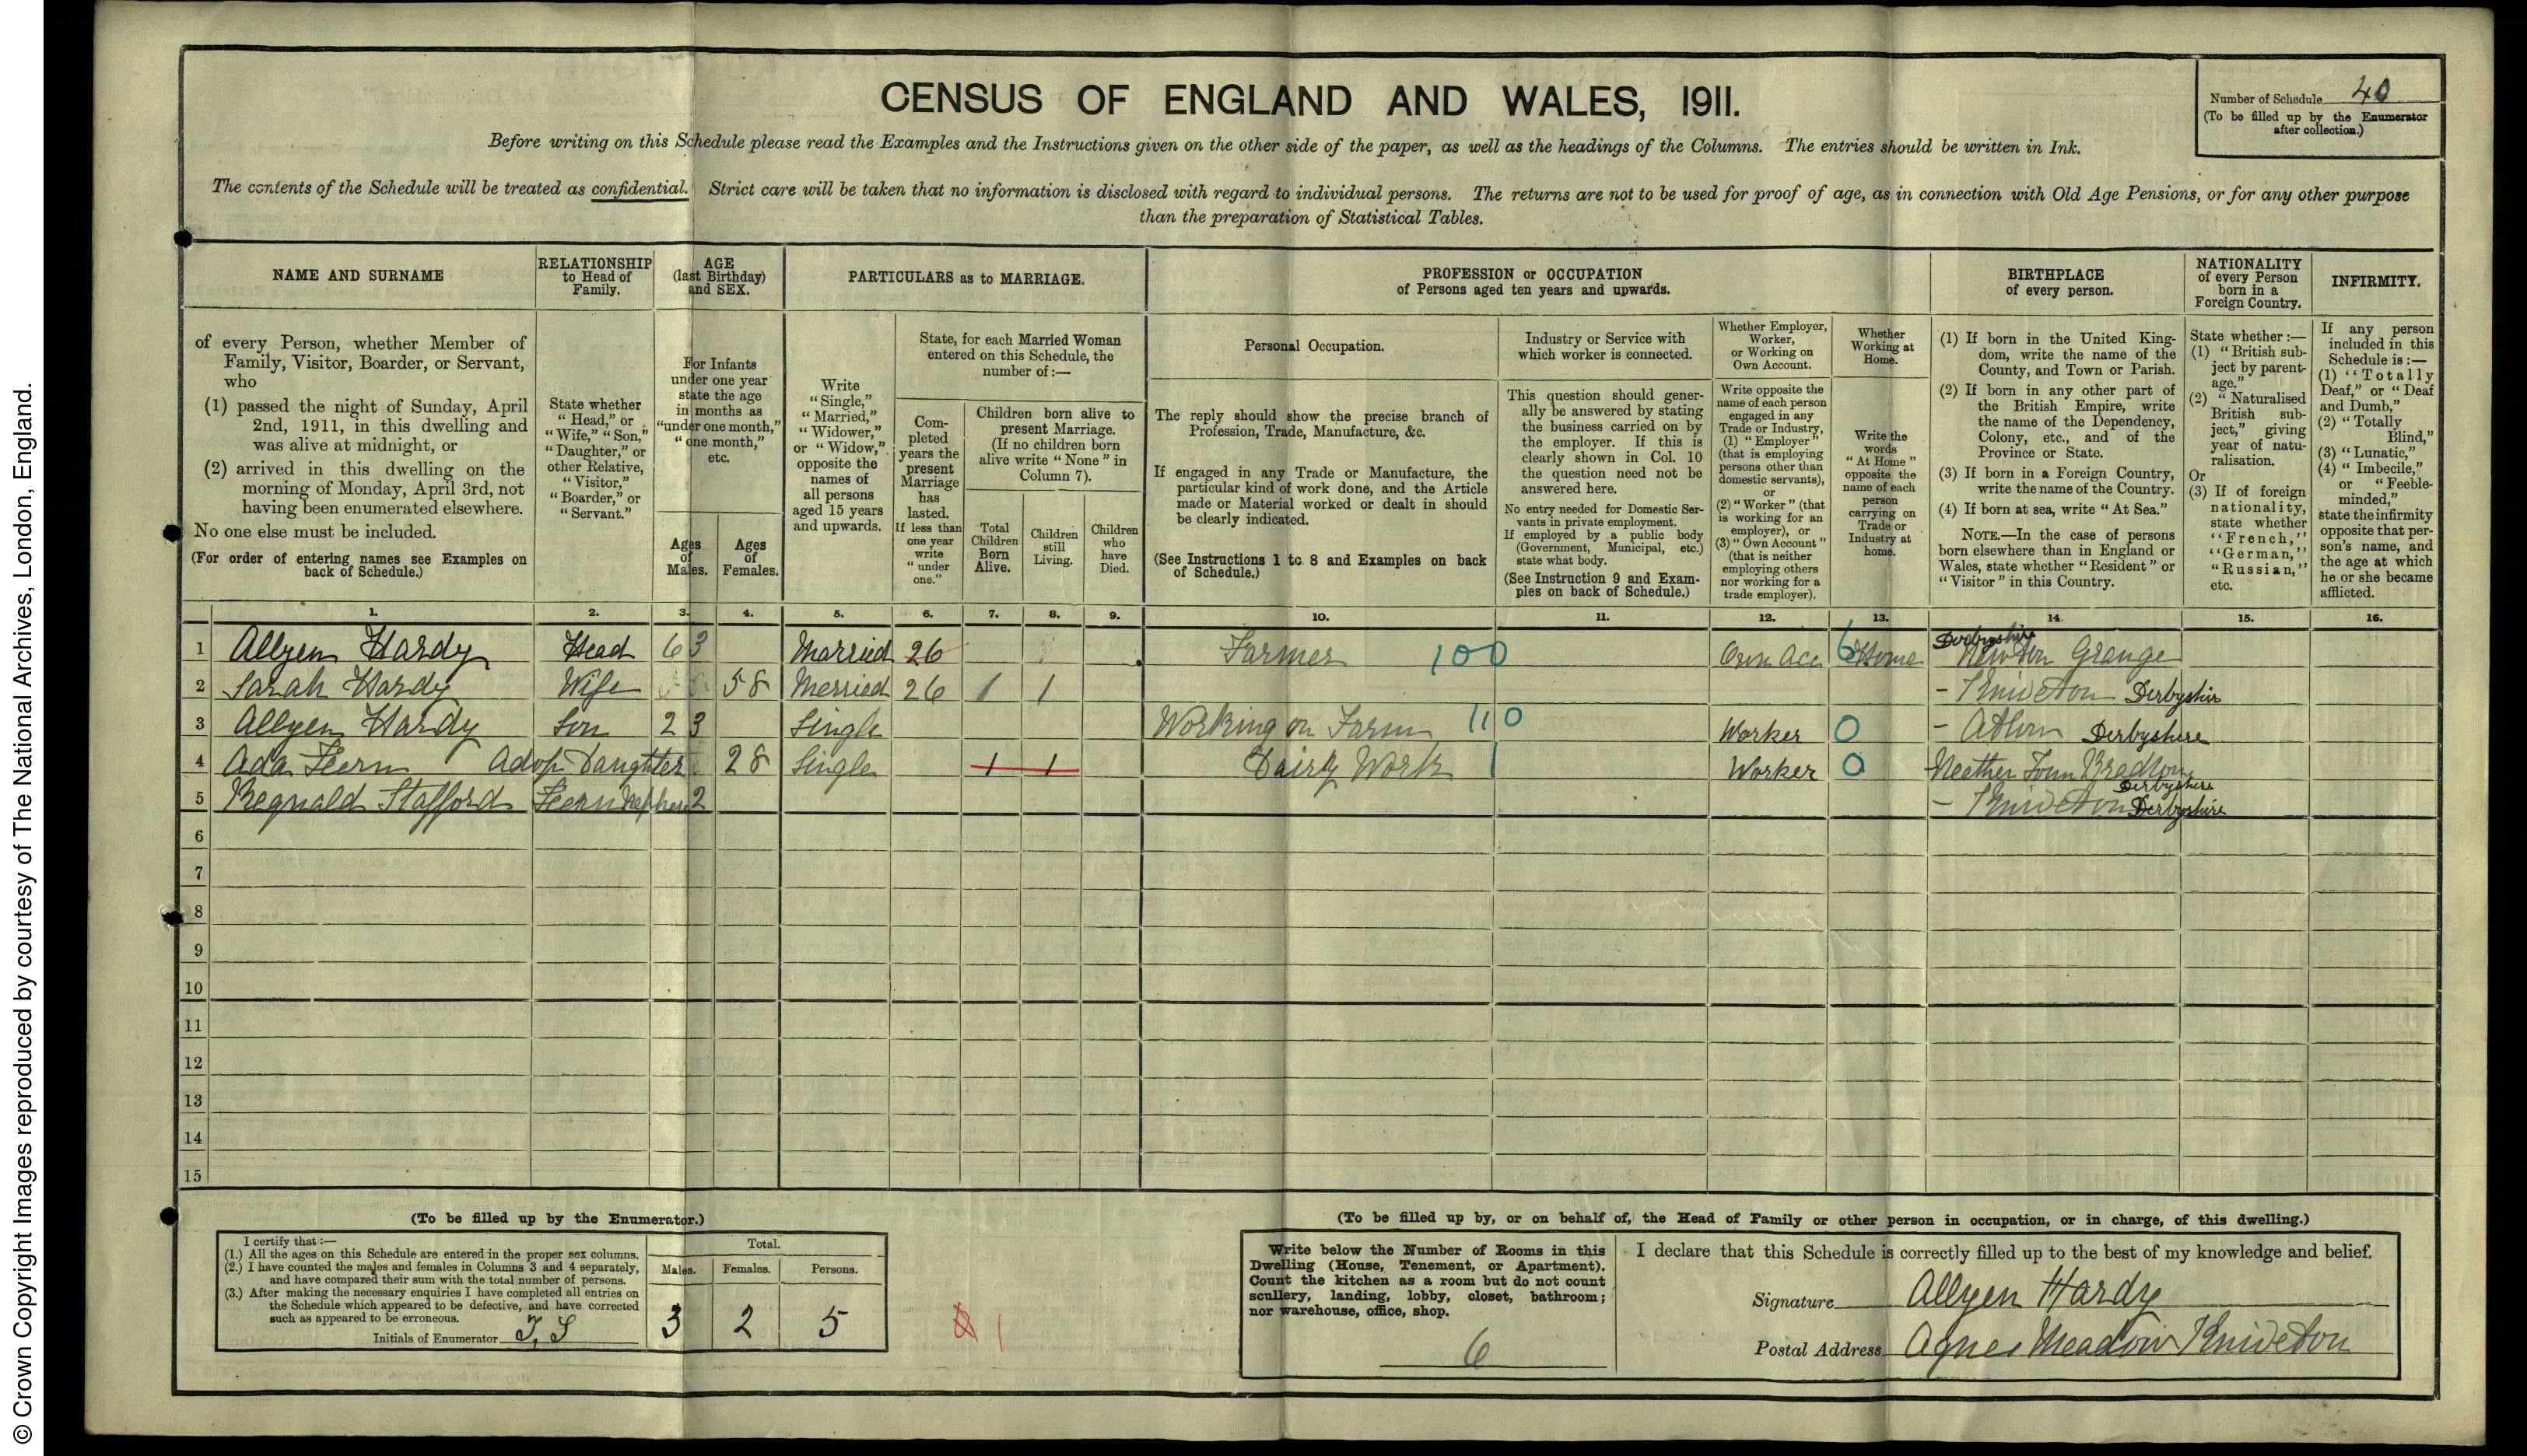 © Crown Copyright Images reproduced by courtesy of The National Archives, London, England.
CENSUS OF ENGLAND AND WALES, 1911.
Number of Schedule 40
(To be filled up by the Enumerator
after collection.)
Before writing on this Schedule please read the Examples and the Instructions given on the other side of the paper, as well as the headings of the Columns. The entries should be written in Ink.
The contents of the Schedule will be treated as confidential. Strict care will be taken that no information is disclosed with regard to individual persons. The returns are not to be used for proof of age, as in connection with Old Age Pensions, or for any other purpose
than the preparation of Statistical Tables.
NAME AND SURNAME
of every Person, whether Member of
Family, Visitor, Boarder, or Servant,
who
(1) passed the night of Sunday, April
2nd, 1911, in this dwelling and
was alive at midnight, or
(2) arrived in this dwelling on the
morning of Monday, April 3rd, not
having been enumerated elsewhere.
No one else must be included.
(For order of entering names see Examples on
back of Schedule.)
RELATIONSHIP
to Head of
Family.
State whether
"Head," or
"Wife," "Son,"
"Daughter," or
other Relative,
"Visitor,"
"Boarder," or
"Servant."
AGE
(last Birthday)
and SEX.
For Infants
under one year
state the age
in months as
"under one month,"
"one month,"
etc.
Ages
of
Males.
Ages
of
Females.
PARTICULARS as to MARRIAGE.
Write
"Single,"
"Married,"
"Widower,"
or "Widow,"
opposite the
names of
all persons
aged 15 years
and upwards.
State, for each Married Woman
entered on this Schedule, the
number of:—
Com-
pleted
years the
present
Marriage
has
lasted.
If less than
one year
write
"under
one."
Children born alive to
present Marriage.
(If no children born
alive write "None" in
Column 7).
Total
Children
Born
Alive.
Children
still
Living.
Children
who
have
Died.
PROFESSION or OCCUPATION
of Persons aged ten years and upwards.
Personal Occupation.
The reply should show the precise branch of
Profession, Trade, Manufacture, &c.
If engaged in any Trade or Manufacture, the
particular kind of work done, and the Article
made or Material worked or dealt in should
be clearly indicated.
(See Instructions 1 to 8 and Examples on back
of Schedule.)
Industry or Service with
which worker is connected.
This question should gener-
ally be answered by stating
the business carried on by
the employer. If this is
clearly shown in Col. 10
the question need not be
answered here.
No entry needed for Domestic Ser-
vants in private employment.
If employed by a public body
(Government, Municipal, etc.)
state what body.
(See Instruction 9 and Exam-
ples on back of Schedule.)
Whether Employer,
Worker,
or Working on
Own Account.
Write opposite the
name of each person
engaged in any
Trade or Industry,
(1) "Employer"
(that is employing
persons other than
domestic servants),
or
(2) "Worker" (that
is working for an
employer), or
(3) "Own Account"
(that is neither
employing others
nor working for a
trade employer).
Whether
Working at
Home.
Write the
words
"At Home"
opposite the
name of each
person
carrying on
Trade or
Industry at
home.
BIRTHPLACE
of every person.
(1) If born in the United King-
dom, write the name of the
County, and Town or Parish.
(2) If born in any other part of
the British Empire, write
the name of the Dependency,
Colony, etc., and of the
Province or State.
(3) If born in a Foreign Country,
write the name of the Country.
(4) If born at sea, write "At Sea."
NOTE.—In the case of persons
born elsewhere than in England or
Wales, state whether "Resident" or
"Visitor" in this Country.
NATIONALITY
of every Person
born in a
Foreign Country.
State whether:—
(1) "British sub-
ject by parent-
age."
(2) "Naturalised
British sub-
ject," giving
year of natu-
ralisation.
Or
(3) If of foreign
nationality,
state whether
"French,"
"German,"
"Russian,"
etc.
INFIRMITY.
If any person
included in this
Schedule is:—
(1) "Totally
Deaf," or "Deaf
and Dumb,"
(2) "Totally
Blind,"
(3) "Lunatic,"
(4) "Imbecile,"
or "Feeble-
minded,"
state the infirmity
opposite that per-
son's name, and
the age at which
he or she became
afflicted.
1. 2. 3. 4. 5. 6. 7. 8. 9. 10. 11. 12. 13. 14. 15. 16.
1 Allyen Hardy Head 63 Married 26 Farmer 100 Own Acc 6 Home Derbyshire Newton Grange
2 Sarah Hardy Wife 58 Married 26 1 1 – Kniveton Derbyshir
3 Allyen Hardy Son 23 Single Working on Farm 110 Worker 0 – Atlow Derbyshire
4 Ada Fern Adop Daughter 28 Single 1 1 Dairy Work 1 Worker 0 Neather Town Bradbon Derbyshire
5 Regnald Stafford Fern Nephew 2 – Kniveton Derbyshire
6
7
8
9
10
11
12
13
14
15
(To be filled up by the Enumerator.)
I certify that:—
(1.) All the ages on this Schedule are entered in the proper sex columns.
(2.) I have counted the males and females in Columns 3 and 4 separately,
and have compared their sum with the total number of persons.
(3.) After making the necessary enquiries I have completed all entries on
the Schedule which appeared to be defective, and have corrected
such as appeared to be erroneous.
Initials of Enumerator
Total.
Males. Females. Persons.
3 2 5
1
(To be filled up by, or on behalf of, the Head of Family or other person in occupation, or in charge, of this dwelling.)
Write below the Number of Rooms in this
Dwelling (House, Tenement, or Apartment).
Count the kitchen as a room but do not count
scullery, landing, lobby, closet, bathroom;
nor warehouse, office, shop.
6
I declare that this Schedule is correctly filled up to the best of my knowledge and belief.
Signature Allyen Hardy
Postal Address Agnes Meadow Kniveton